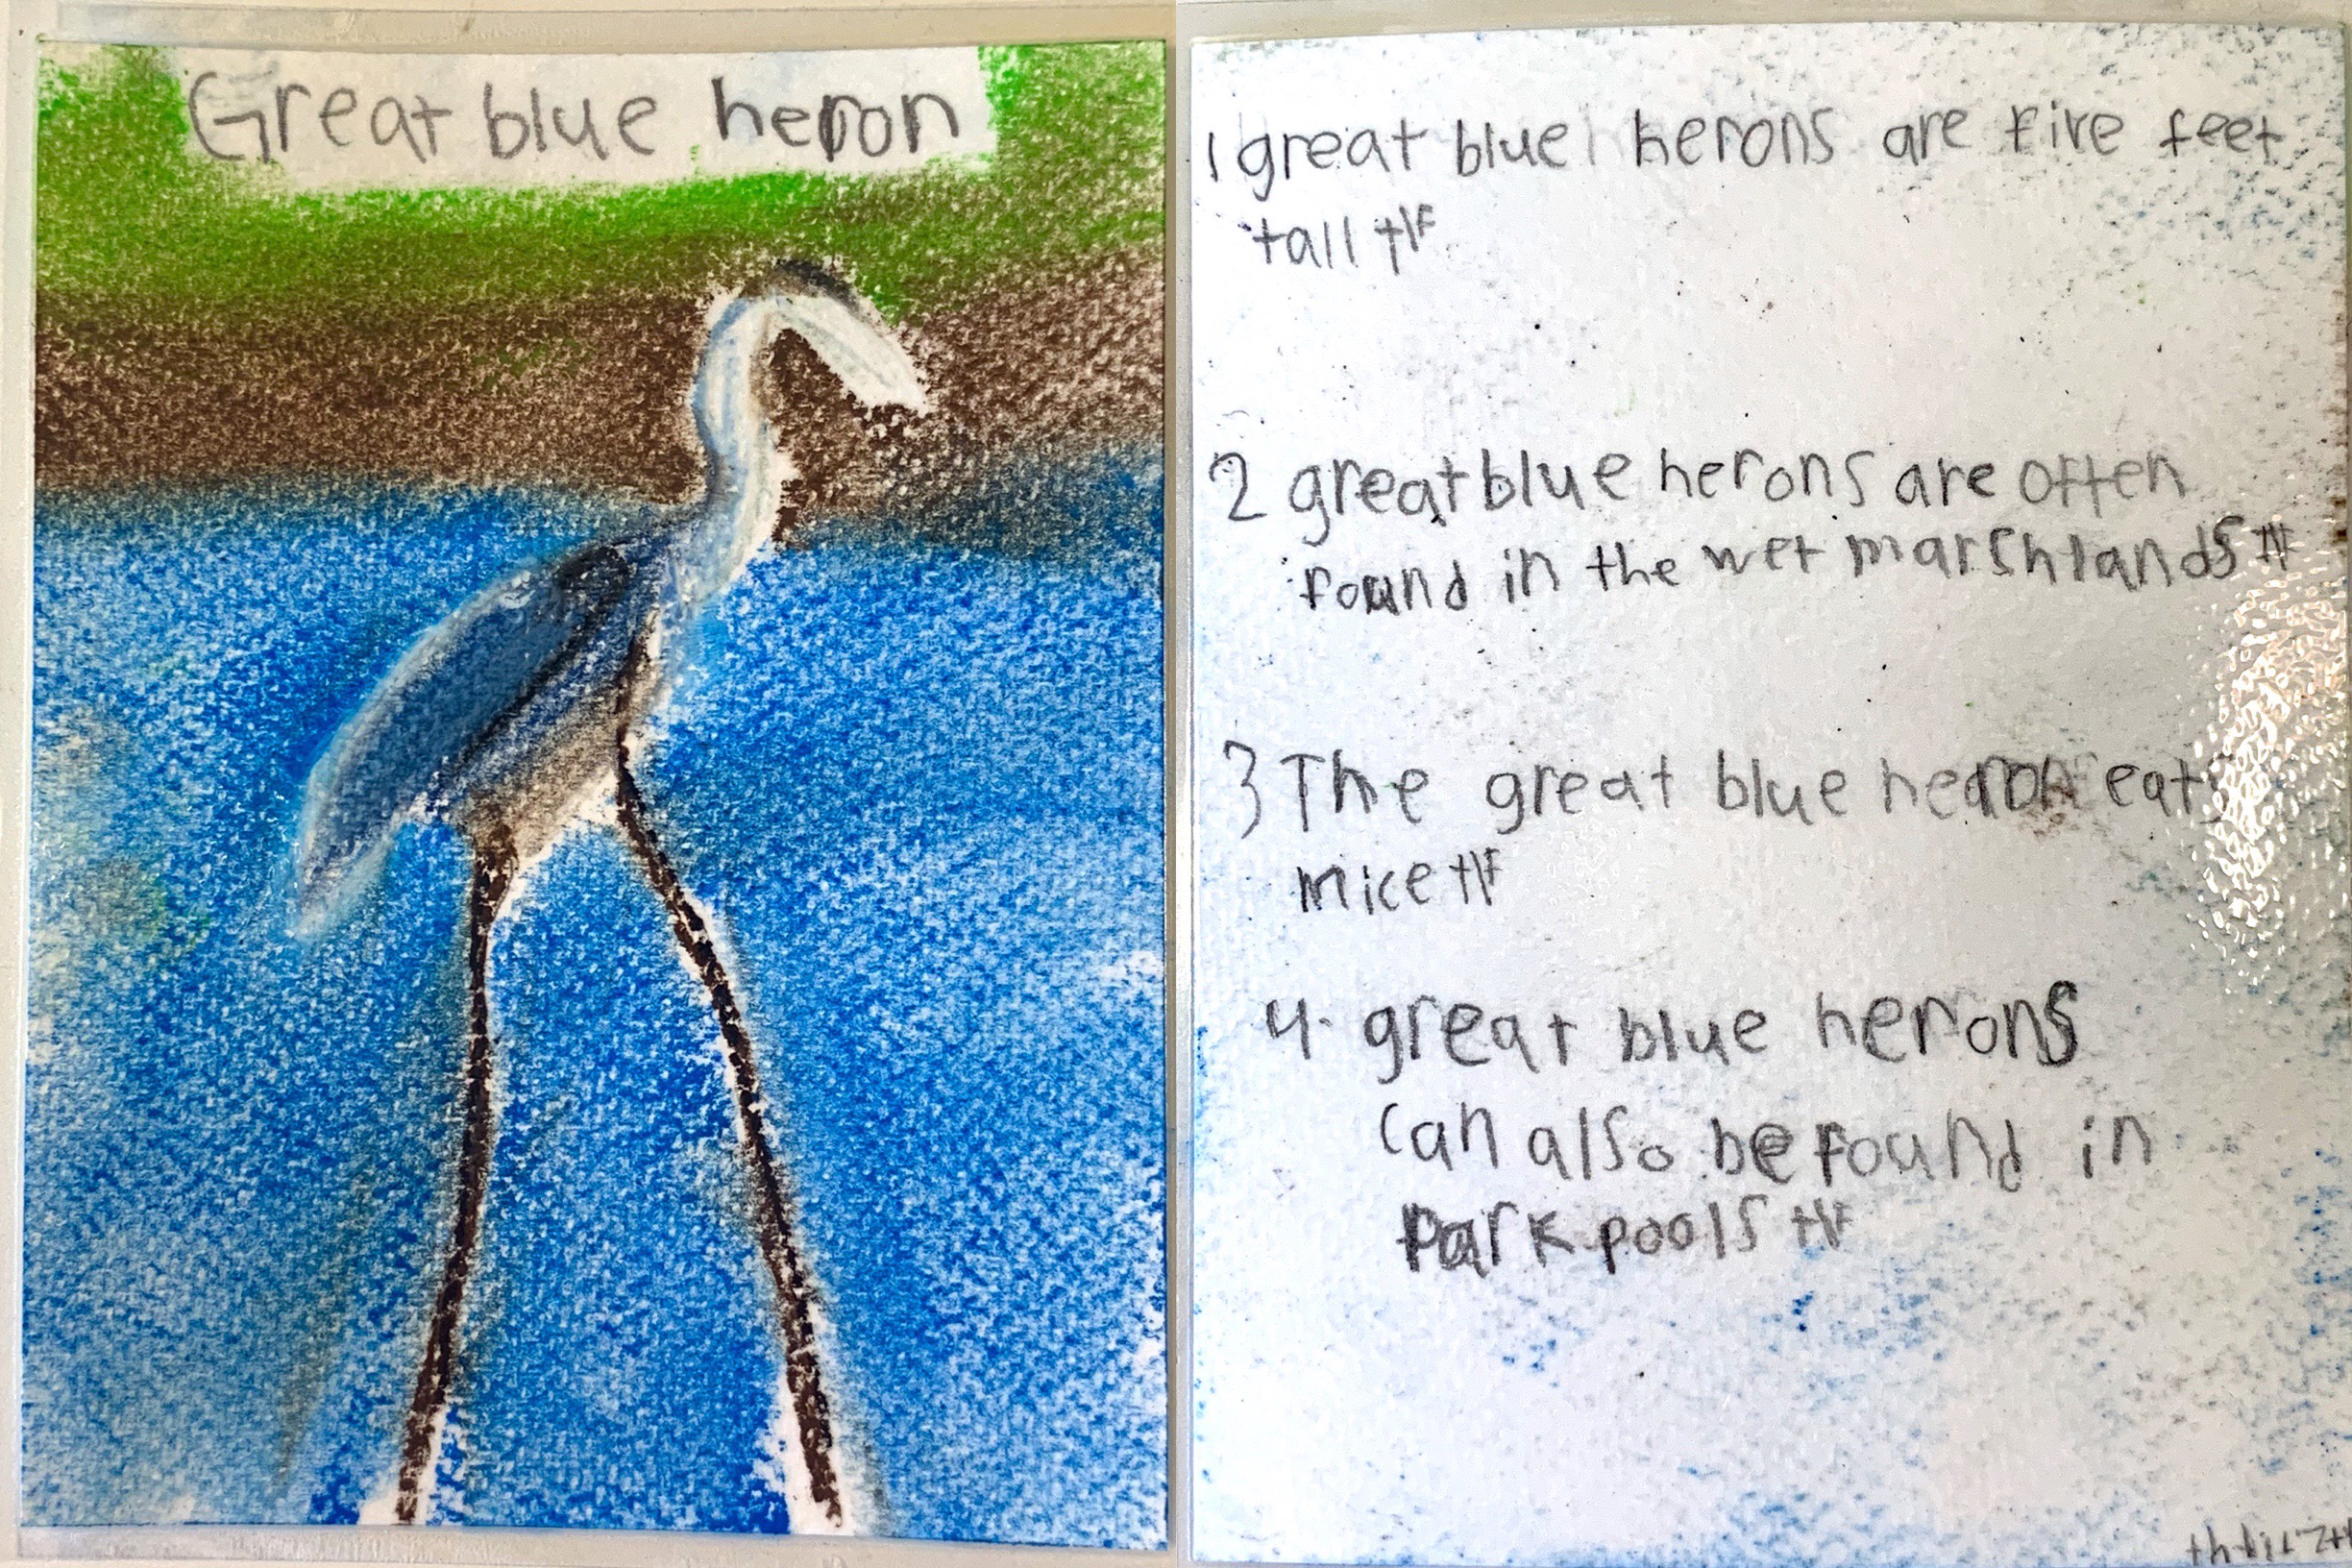 Great blue heron
1 great blue herons are five feet
tall t\F
2 great blue herons are often
found in the wet marshlands t\F
3 The great blue heron eats
mice t\F
4. great blue herons
can also be found in
park pools t\F